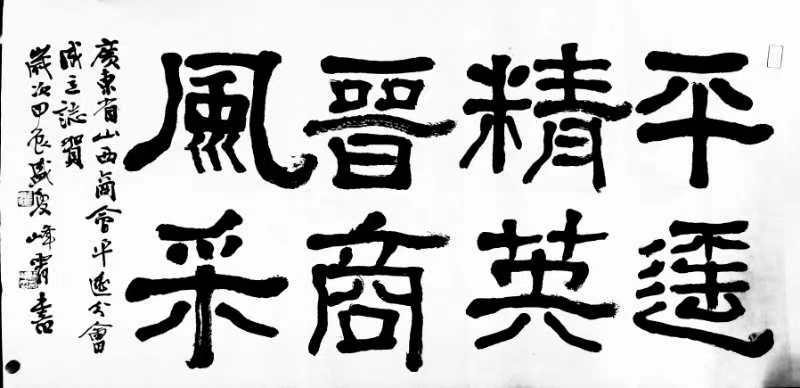 平遥
精英
晋商
風采
廣東省山西商會平遥分會
成立誌賀
歲次甲辰盛夏峰霄書